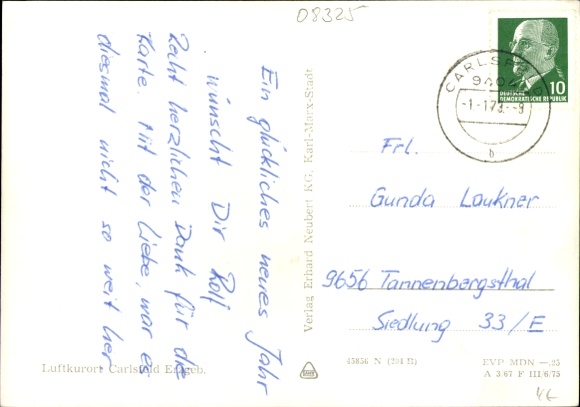 08325
Ein glückliches neues Jahr
wünscht Dir Rolf
Recht herzlichen Dank für die
Karte. Mit der Liebe, war es
diesmal nicht so weit her
Luftkurort Carlsfeld Erzgeb.
Verlag Erhard Neubert KG, Karl-Marx-Stadt
CARLSFELD
-1-1.73.-9
b
10
DEUTSCHE
DEMOKRATISCHE REPUBLIK
Frl.
Gunda Laukner
9656 Tannenbergsthal
Siedlung 33/E
45856 N (294 II)
EVP MDN —.25
A 3/67 F III/6/75